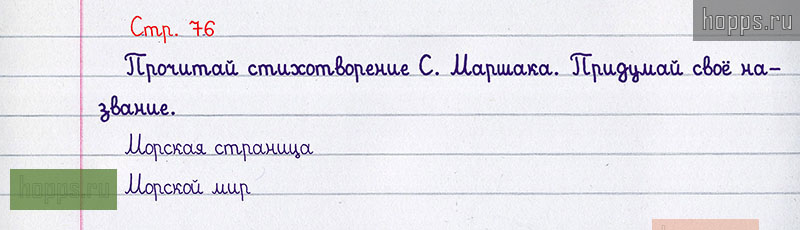 hopps.ru
Стр. 76
Прочитай стихотворение С. Маршака. Придумай своё на-
звание.
Морская страница
Морской мир
hopps.ru